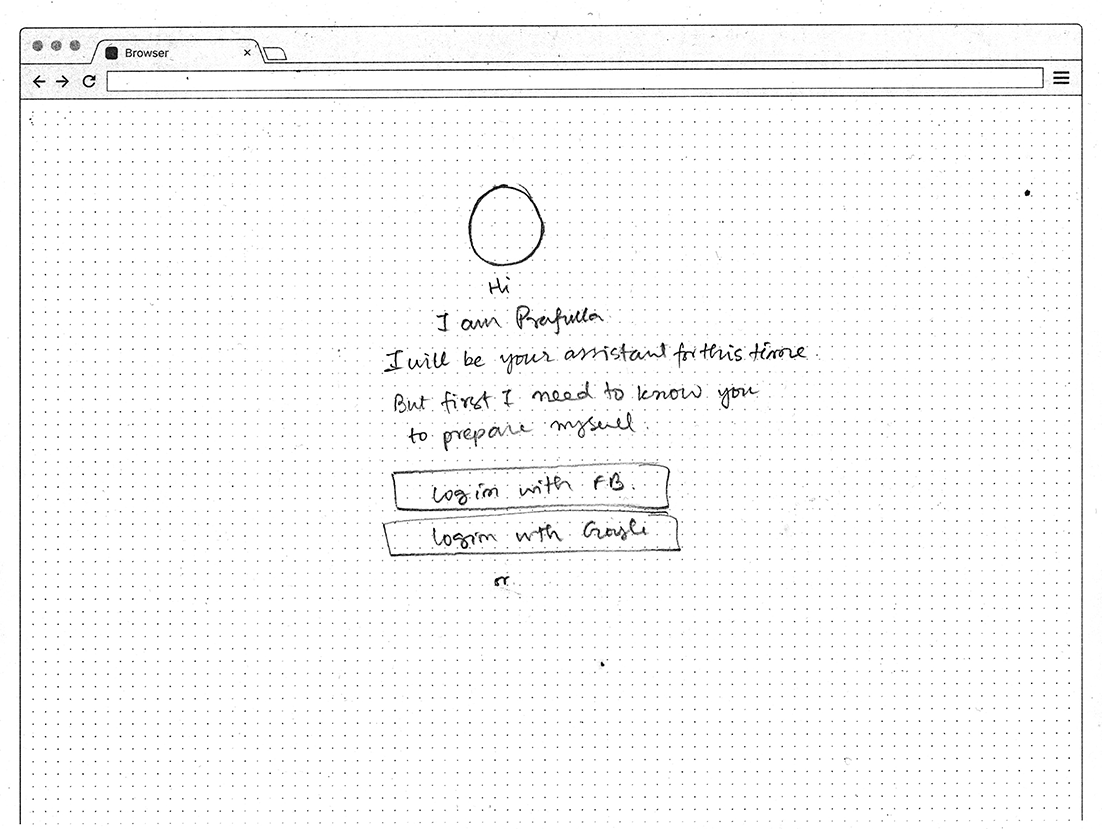 Browser
Hi
I am Prafulla
I will be your assistant for this time.
But first I need to know you
to prepare myself.
Login with FB.
Login with Google
or